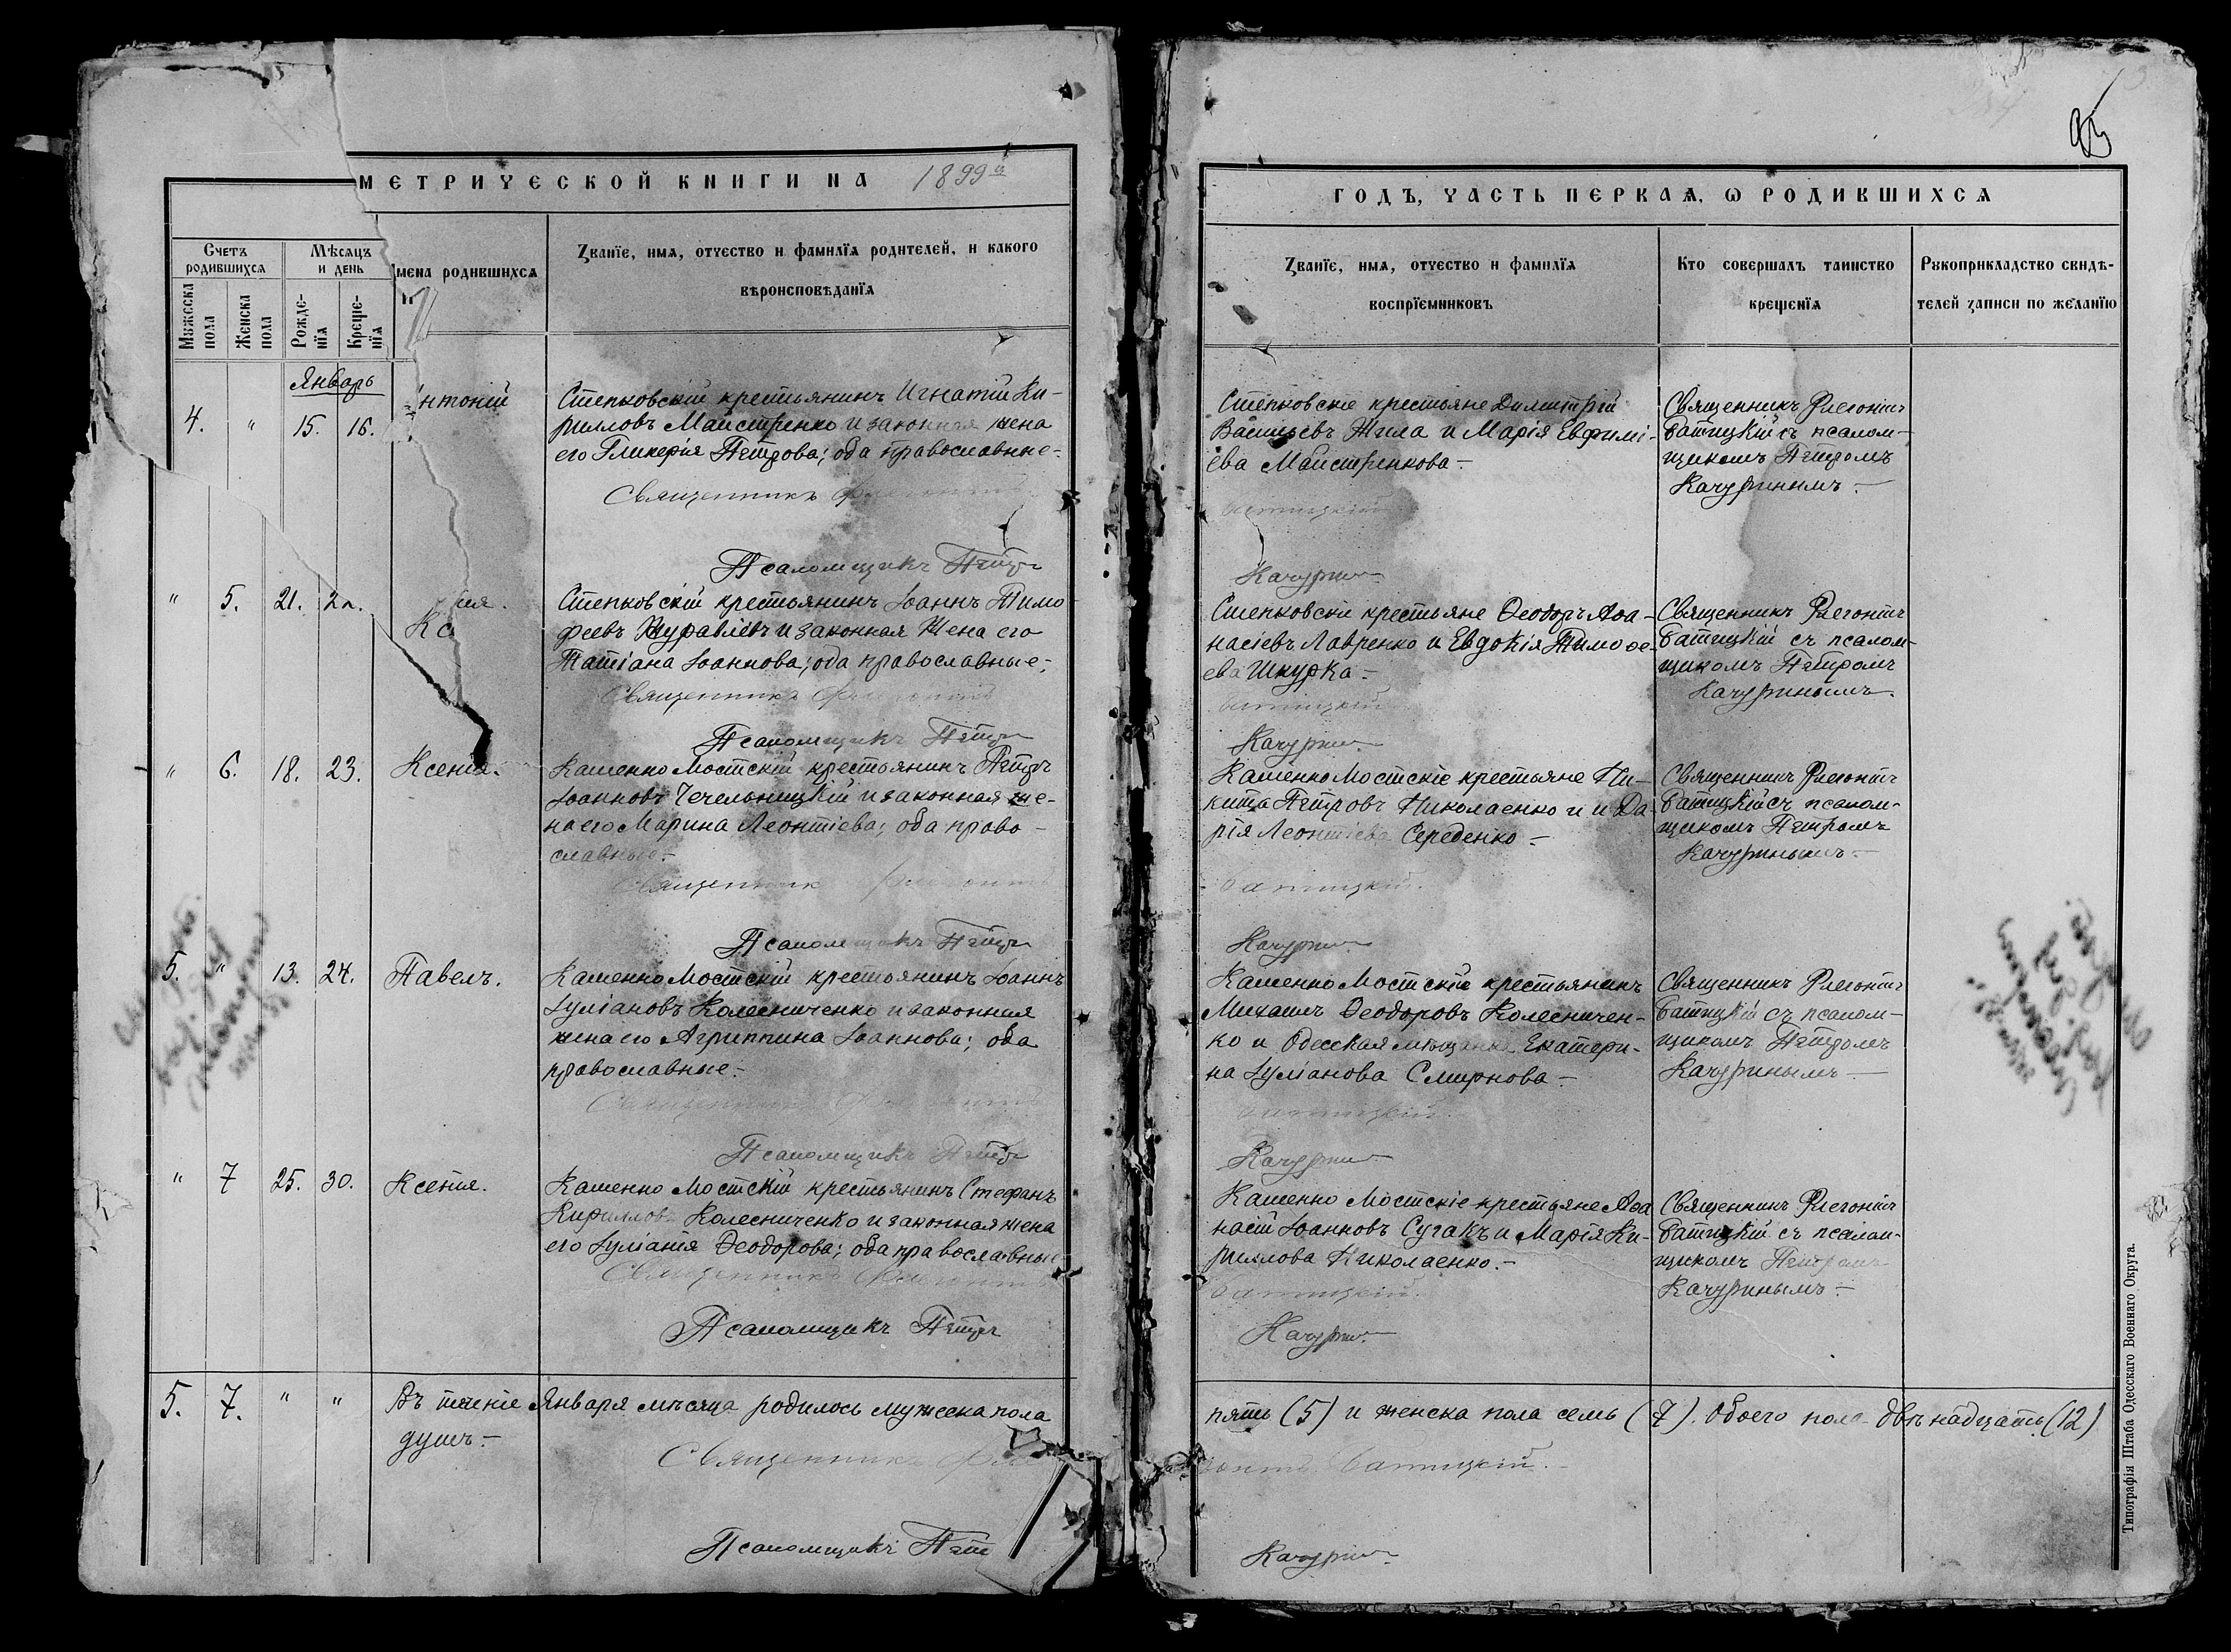 МЕТРИЧЕСКОЙ КНИГИ НА 1899й
Счетъ родившихся
Мѣсяцъ и день
Мужеска пола
Женска пола
Рожденія
Крещенія
мена родившихся
Званіе, имя, отчество и фамилія родителей, и какого
вѣроисповѣданія
Январь
4. " 15. 16.
нтоній
Степковскій крестьянинъ Игнатій Ки-
рилловъ Майстренко и законная жена
его Гликерія Петрова; оба православные.-
Священникъ
Псаломщикъ Петръ
" 5. 21.
Степковскій крестьянинъ Іоаннъ Тимо
феевъ Журавлевъ и законная жена его
Татіана Іоаннова; оба православные.-
Священникъ
Псаломщикъ Петръ
" 6. 18. 23. Ксенія.
КаменноМостскій крестьянинъ Петръ
Іоанновъ Чечельницкій и законная же-
на его Марина Леонтіева; оба право-
славные.-
Священник
Псаломщикъ Петръ
5. " 13. 24. Павелъ.
КаменноМостскій крестьянинъ Іоаннъ
Іуліановъ Колесниченко и законная
жена его Агриппина Іоаннова; оба
православные.-
Священник
Псаломщикъ Петръ
" 7 25. 30. Ксенія.
Каменно Мостскій крестьянинъ Стефанъ
Кириллов Колесниченко и законная жена
его Іуліанія Ѳеодорова; оба православные
Священникъ
Псаломщикъ Петръ
5. 7. " " Въ теченіе Января мѣсяца родилось мужеска пола
душъ.-
Священникъ
Псаломщикъ Пет
ГОДЪ, ЧАСТЬ ПЕРВАЯ, Ѡ РОДИВШИХСЯ
Званіе, имя, отчество и фамилія
воспріемниковъ
Кто совершалъ таинство
крещенія
Рукоприкладство свидѣ-
телей записи по желанію
Степковскіе крестьяне Димитрій
Васильевъ Жила и Марія Евфимі-
ева Майстренкова.-
Качуринъ
Священникъ Флегонтъ
Батицкій съ псалом-
щикомъ Петромъ
Качуринымъ.-
Степковскіе крестьяне Ѳеодоръ Аѳа-
насіевъ Лавренко и Евдокія Тимоѳе-
ева Шкурка.-
Качуринъ
Священникъ Флегонтъ
Батицкій съ псалом-
щикомъ Петромъ
Качуринымъ.
КаменноМостскіе крестьяне Ни-
кита Петровъ Николаенко и и Да-
рія Леонтіева Середенко.-
Батицкій.
Качуринъ
Священникъ Флегонтъ
Батицкій съ псалом-
щикомъ Петромъ
Качуринымъ.-
КаменноМостскіе крестьянинъ
Михаилъ Ѳеодоровъ Колесничен-
ко и Одесская мѣщанка Екатери-
на Іуліанова Смирнова.-
Батицкій.
Качуринъ
Священникъ Флегонтъ
Батицкій съ псалом-
щикомъ Петромъ
Качуринымъ.-
Каменно Мостскіе крестьяне Аѳа
насій Іоанновъ Сугакъ и Марія Ки-
риллова Николаенко.-
Батицкій.
Качуринъ
Священникъ Флегонтъ
Батицкій съ псалом-
щикомъ Петромъ
Качуринымъ.-
пять (5) и женска пола семь (7). Обоего пола двѣнадцать (12)
Батицкій.-
Качуринъ
Типографія Штаба Одесскаго Военнаго Округа.